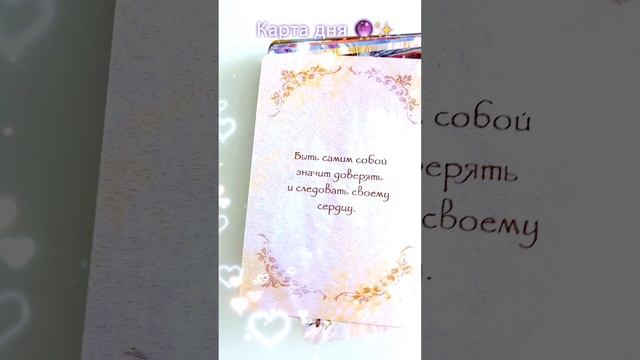 Карта дня 🔮✨
Быть самим собой
значит доверять
и следовать своему
сердцу.
собой
верять
своему
.